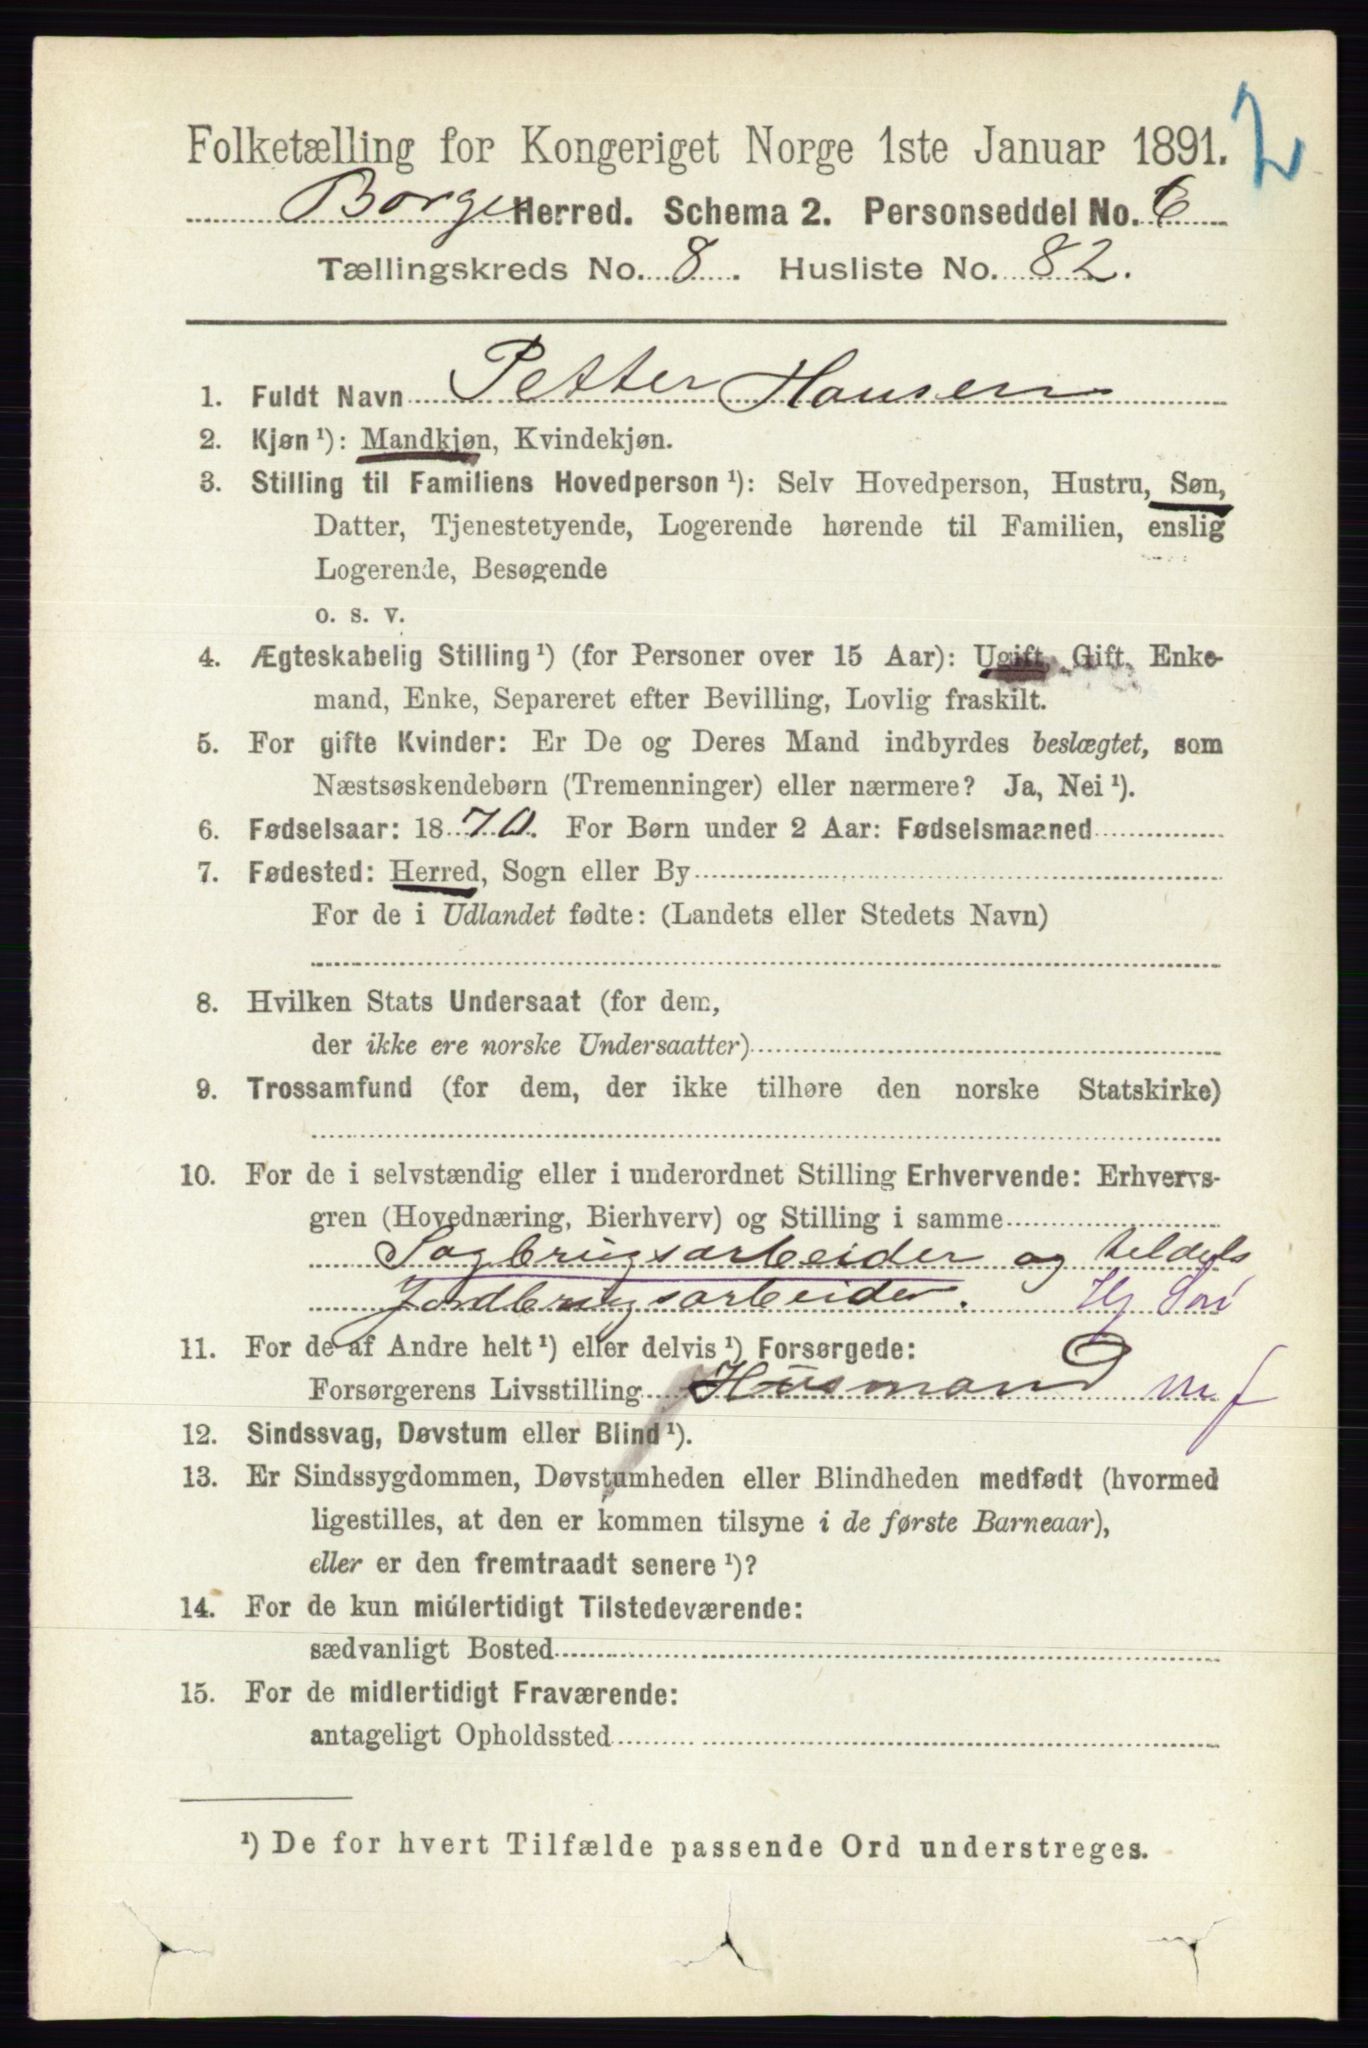 Folketælling for Kongeriget Norge 1ste Januar 1891. 2
Borge Herred. Schema 2. Personseddel No. 6
Tællingskreds No. 8. Husliste No. 82.
1. Fuldt Navn Petter Hansen
2. Kjøn ¹): Mandkjøn, Kvindekjøn.
3. Stilling til Familiens Hovedperson ¹): Selv Hovedperson, Hustru, Søn,
Datter, Tjenestetyende, Logerende hørende til Familien, enslig
Logerende, Besøgende
o. s. v.
4. Ægteskabelig Stilling ¹) (for Personer over 15 Aar): Ugift, Gift, Enke-
mand, Enke, Separeret efter Bevilling, Lovlig fraskilt.
5. For gifte Kvinder: Er De og Deres Mand indbyrdes beslægtet, som
Næstsøskendebørn (Tremenninger) eller nærmere? Ja, Nei ¹).
6. Fødselsaar: 1870. For Børn under 2 Aar: Fødselsmaaned
7. Fødested: Herred, Sogn eller By
For de i Udlandet fødte: (Landets eller Stedets Navn)
8. Hvilken Stats Undersaat (for dem,
der ikke ere norske Undersaatter)
9. Trossamfund (for dem, der ikke tilhøre den norske Statskirke)
10. For de i selvstændig eller i underordnet Stilling Erhvervende: Erhvervs-
gren (Hovednæring, Bierhverv) og Stilling i samme
Sagbrugsarbeider og teldels
Jordbrugsarbeider.
11. For de af Andre helt ¹) eller delvis ¹) Forsørgede:
Forsørgerens Livsstilling Husmand mf
12. Sindssvag, Døvstum eller Blind ¹).
13. Er Sindssygdommen, Døvstumheden eller Blindheden medfødt (hvormed
ligestilles, at den er kommen tilsyne i de første Barneaar),
eller er den fremtraadt senere ¹)?
14. For de kun midlertidigt Tilstedeværende:
sædvanligt Bosted
15. For de midlertidigt Fraværende:
antageligt Opholdssted
¹) De for hvert Tilfælde passende Ord understreges.